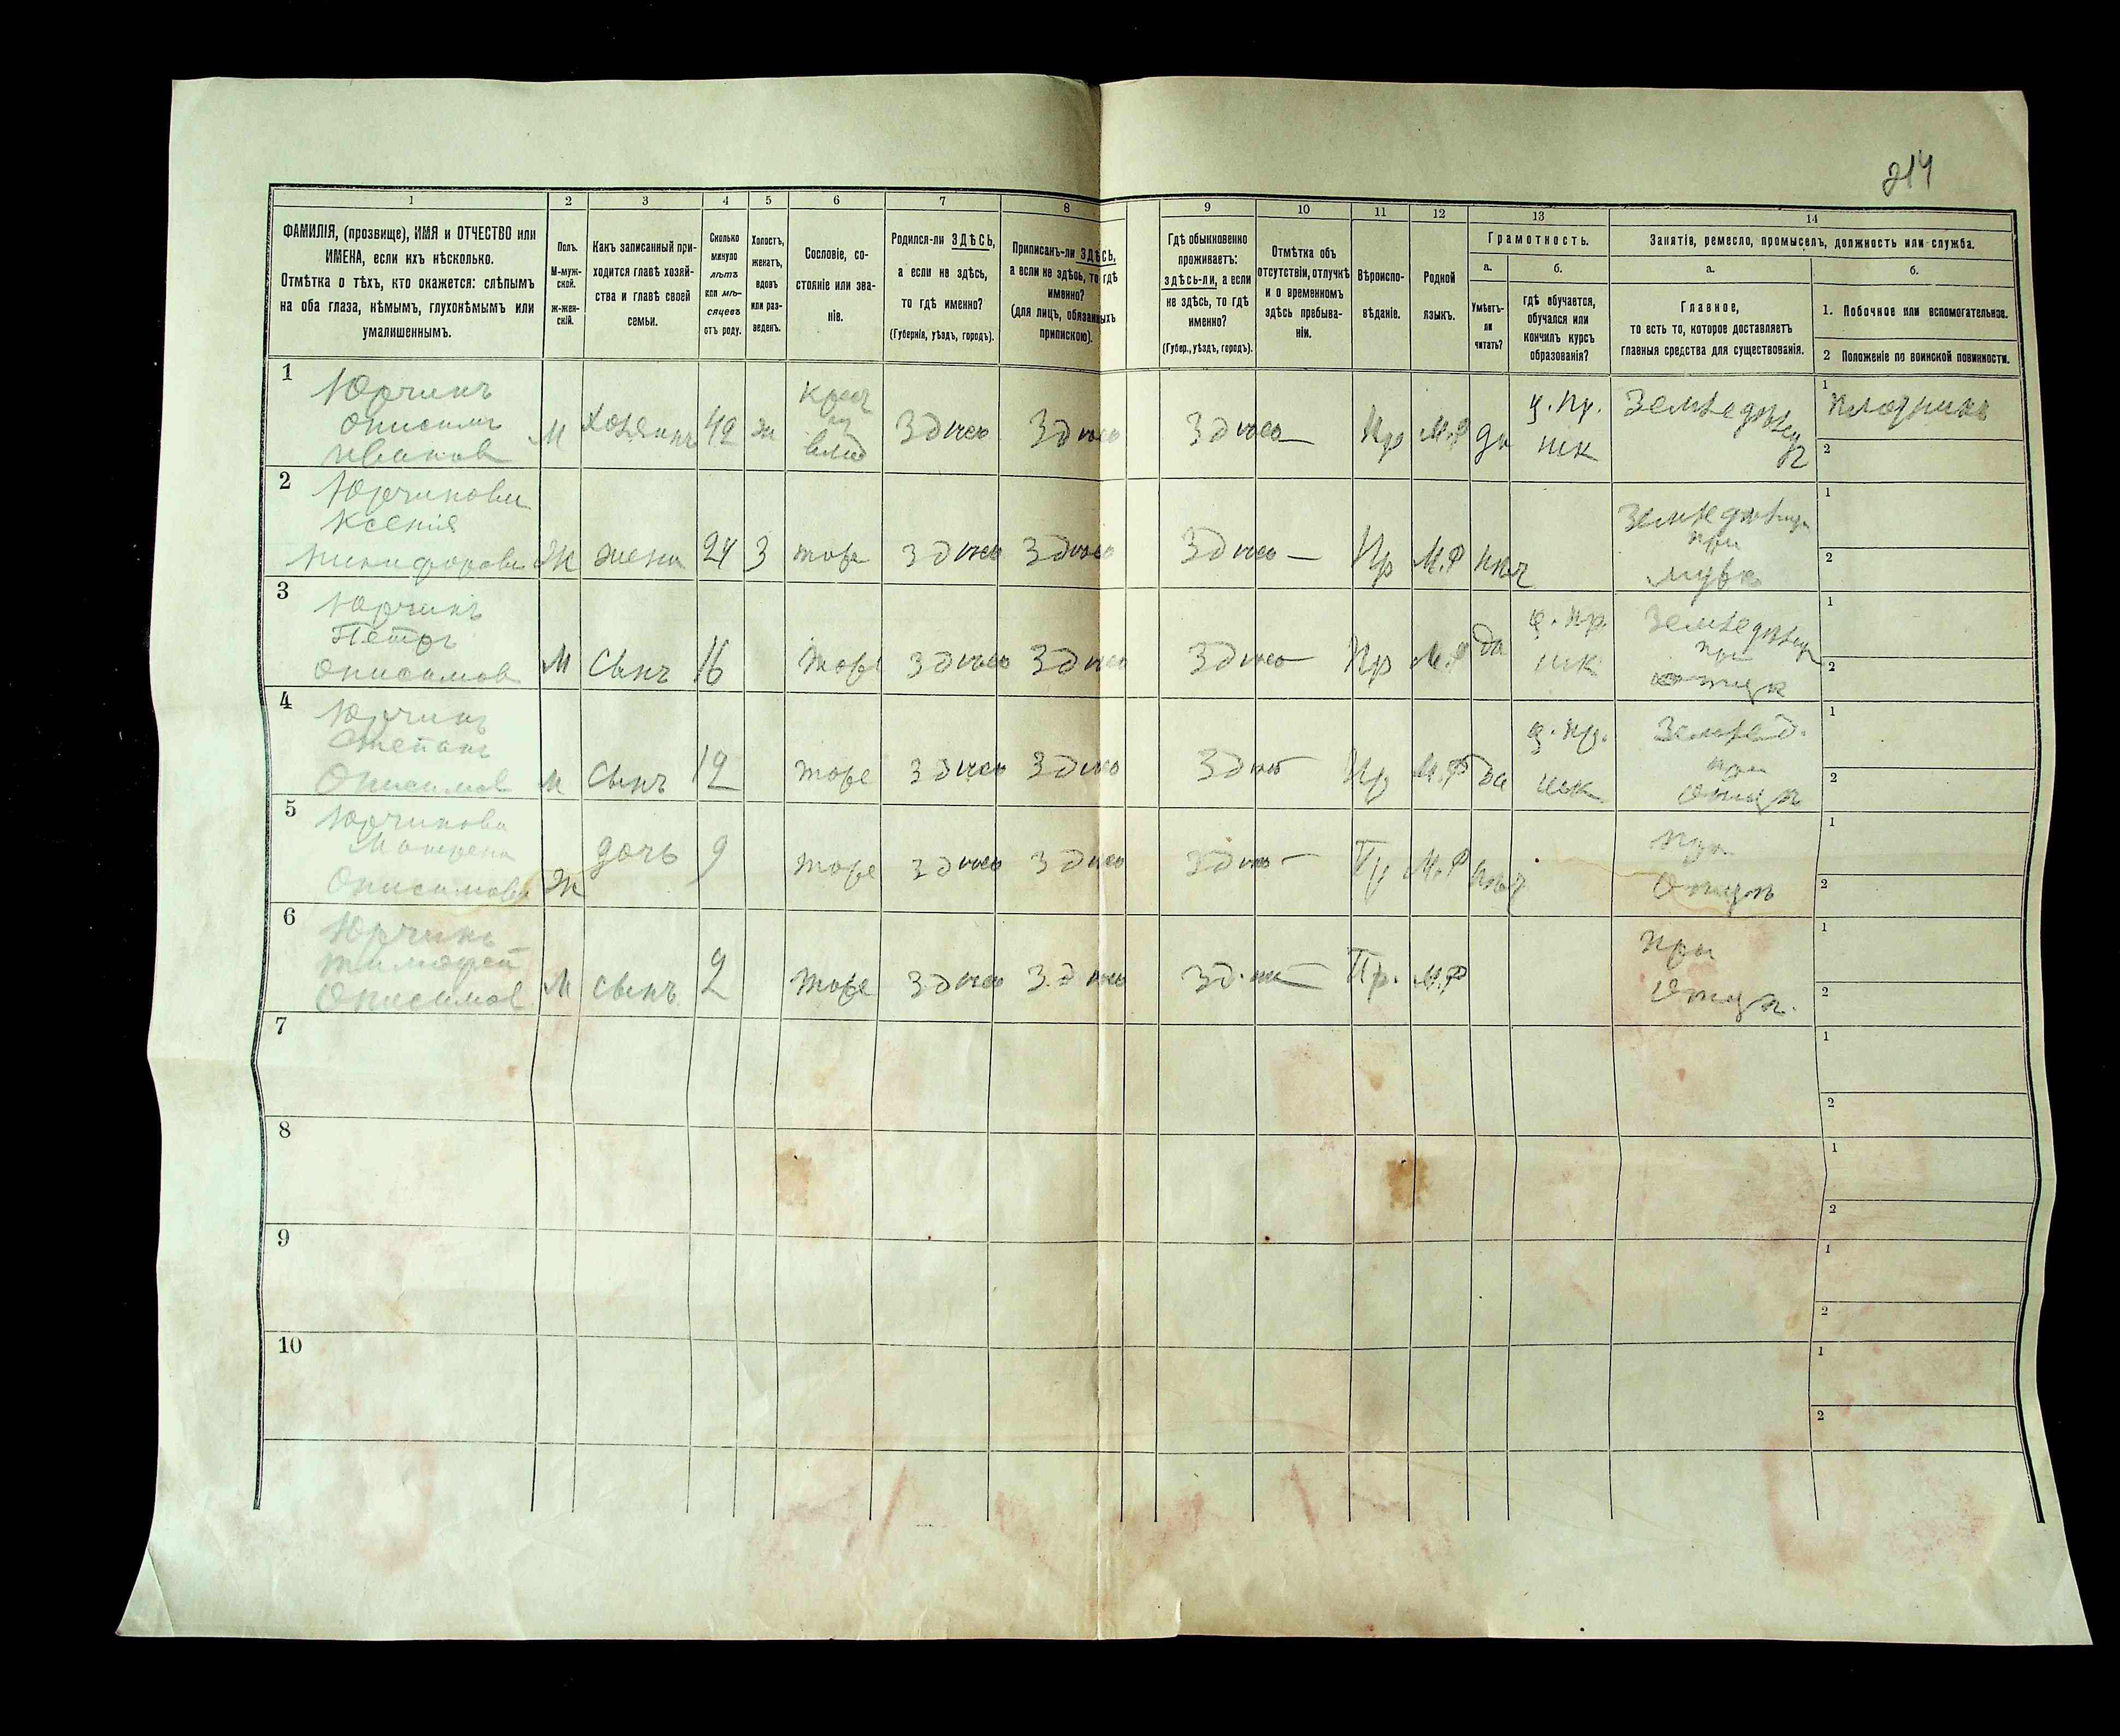 214
1 2 3 4 5 6 7 8 9 10 11 12 13 14
ФАМИЛІЯ, (прозвище), ИМЯ и ОТЧЕСТВО или
ИМЕНА, если ихъ нѣсколько.
Отмѣтка о тѣхъ, кто окажется: слѣпымъ
на оба глаза, нѣмымъ, глухонѣмымъ или
умалишеннымъ.
Полъ.
М-муж-
ской.
ж-жен-
скій.
Какъ записанный при-
ходится главѣ хозяй-
ства и главѣ своей
семьи.
Сколько
минуло
лѣтъ
или мѣ-
сяцевъ
отъ роду.
Холостъ,
женатъ,
вдовъ
или раз-
веденъ.
Сословіе, со-
стояніе или зва-
ніе.
Родился-ли ЗДѢСЬ,
а если не здѣсь,
то гдѣ именно?
(Губернія, уѣздъ, городъ).
Приписанъ-ли ЗДѢСЬ,
а если не здѣсь, то гдѣ
именно?
(для лицъ, обязанныхъ
припискою).
Гдѣ обыкновенно
проживаетъ:
здѣсь-ли, а если
не здѣсь, то гдѣ
именно?
(Губер., уѣздъ, городъ).
Отмѣтка объ
отсутствіи, отлучкѣ
и о временномъ
здѣсь пребыва-
ніи.
Вѣроиспо-
вѣданіе.
Родной
языкъ.
Грамотность.
а. б.
Умѣетъ-
ли
читать?
гдѣ обучается,
обучался или
кончилъ курсъ
образованія?
Занятія, ремесло, промыселъ, должность или служба.
а. б.
Главное,
то есть то, которое доставляетъ
главныя средства для существованія.
1. Побочное или вспомогательное.
2 Положеніе по воинской повинности.
1
Юрчикъ
Онисимъ
Иванов
М Хозяинъ 42 ж
крест
из
влад
Здѣсь Здѣсь Здѣсь — Пр М.Р да
ц. пр.
шк
Земледѣлец
1 плотникъ
2
2
Юрчикова
Ксенія
Никифорова
Ж жена 24 З тоже Здѣсь Здѣсь Здѣсь — Пр М.Р нѣт
при
мужѣ
1
2
3
Юрчикъ
Петръ
Онисимов
М сынъ 16 тоже Здѣсь Здѣсь Здѣсь — Пр М.Р да
ц. пр.
шк
при
отцѣ
1
2
4
Юрчикъ
Степанъ
Онисимов
М сынъ 12 тоже Здѣсь Здѣсь Здѣсь — Пр М.Р да
ц. пр.
шк
Землед.
при
отцѣ
1
2
5
Юрчикова
Матрена
Онисимова
Ж дочь 9 тоже Здѣсь Здѣсь Здѣсь — Пр М.Р нѣт
при
отцѣ
1
2
6
Юрчикъ
Тимофей
Онисимов
М сынъ 2 тоже Здѣсь Здѣсь Здѣсь — Пр. М.Р
при
отцѣ.
1
2
7
1
2
8
1
2
9
1
2
10
1
2